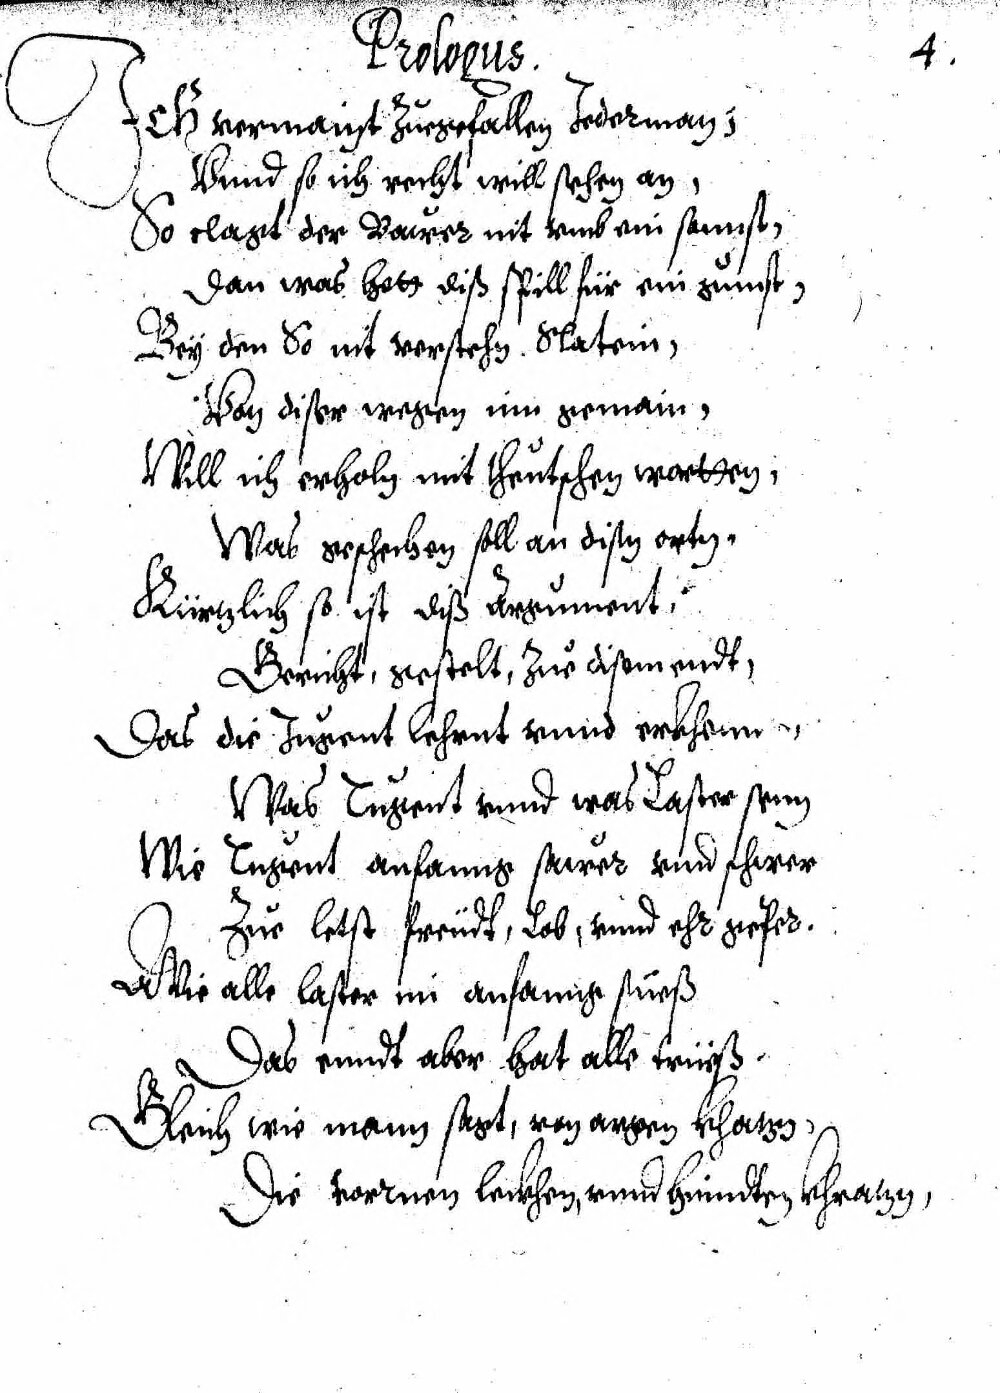 Prologus.
4.
Ich vermaint Zuegefallen Jederman,
Vnnd so ich recht will sehen an,
So clagt der Baurer nit vmb ein sonnst,
Dan was hett diß spill für ein gunst,
Bey den So nit verstehn Slatein,
Von diser wegen inn gemain,
Will ich erholn mit theutschen wortten,
Was geschechen soll an disen ortn.
Kürtzlich so ist diß Argument,
Gericht, gestelt, Zue disem endt,
Das die Jugent lehrnt vnnd erkhenn,
Was Tugent vnnd was Laster senn
Wie Tugent anfanng saurer vnd schwer
Zue letst freüdt, Lob, vnnd ehr
Wie alle laster im anfanng süeß
Das enndt aber hat alle
Gleich wie mann sagt, von argen khatzn,
Die vornen leckhen, vnnd hinndten khratzn,